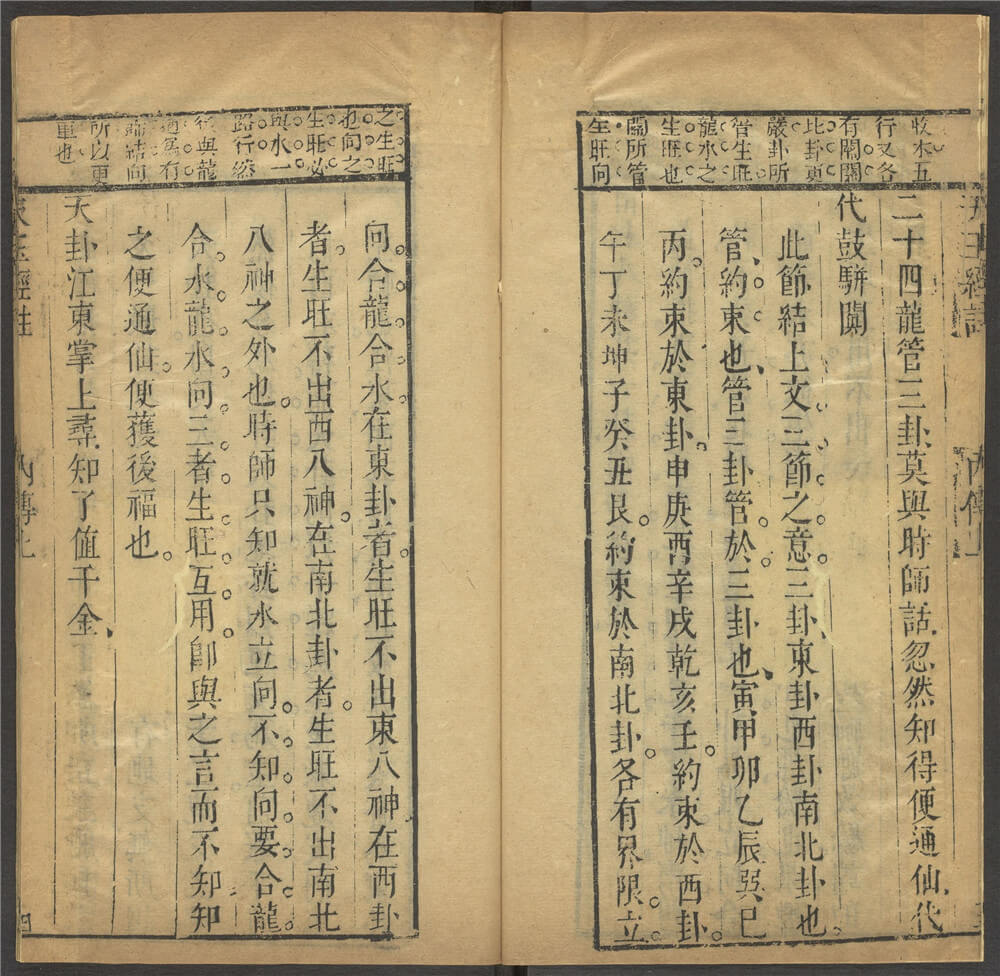 收水五
行又各
有關闌
此卦更
嚴卦所
管生旺
龍水之
生旺也
關所管
生旺向
二十四龍管三卦莫與時師話忽然知得便通仙代
代鼓駢闐
此節結上文三節之意三卦東卦西卦南北卦也
管約束也管三卦管於三卦也寅甲卯乙辰巽巳
丙約束於東卦申庚酉辛戌乾亥壬約束於西卦
午丁未坤子癸丑艮約束於南北卦各有界限立
之生旺
也向之
生旺必
與水一
路行然
後與龍
通爲有
歸結向
所以更
重也
向合龍合水在東卦者生旺不出東八神在西卦
者生旺不出西八神在南北卦者生旺不出南北
八神之外也時師只知就水立向不知向要合龍
合水龍水向三者生旺互用卽與之言而不知知
之便通仙便獲後福也
天卦江東掌上尋知了值千金